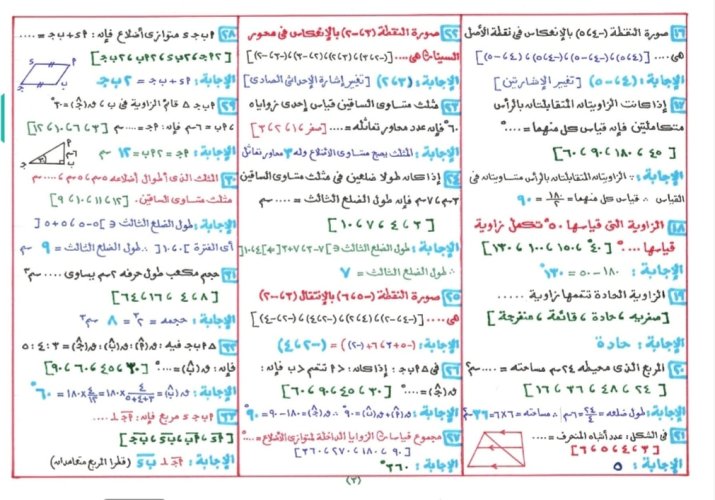 ١٦ صورة النقطة (-٥،٤) بالانعكاس في نقطة الأصل
هي .... [(٤،٥)،(-٤،٥)،(٥،-٤)،(٤،-٥)]
الإجابة: (٤،-٥) [تغيير الإشارتين]
١٧ إذا كانت الزاويتان المتقابلتان بالرأس
متكاملتين فإن قياس كل منهما = ....°
[٤٥، ١٨٠، ٩٠، ٦٠]
الإجابة: ∵ الزاويتان المتقابلتان بالرأس متساويتان في
القياس ∴ قياس كل منهما = ١٨٠/٢ = ٩٠
١٨ الزاوية التي قياسها ٥٠° تكمل زاوية
قياسها ....° [٤٠، ١٥٠، ١٠٠، ١٣٠]
الإجابة: ١٨٠ - ٥٠ = ١٣٠°
١٩ الزاوية الحادة تتممها زاوية .....
[صفرية، حادة، قائمة، منفرجة]
الإجابة: حادة
٢٠ المربع الذي محيطه ٢٤ سم مساحته = ....سم²
[٢٤، ٤٨، ٣٦، ١٦]
الإجابة: طول ضلعه = ٢٤/٤ = ٦سم ∴ مساحته = ٦×٦ = ٣٦سم²
٢١ في الشكل: عدد أشباه المنحرف = ....
[٣، ٤، ٥، ٦]
الإجابة: ٥
٢٢ صورة النقطة (٣،-٢) بالانعكاس في محور
السينات هي ....
الإجابة: (٣،٢) [تغيير إشارة الإحداثي الصادي]
٢٣ مثلث متساوي الساقين قياس إحدى زواياه
٦٠° فإن عدد محاور تماثله = .... [صفر، ١، ٢، ٣]
الإجابة: المثلث يصبح متساوي الأضلاع وله ٣ محاور تماثل
٢٤ إذا كان طولا ضلعين في مثلث متساوي الساقين
٣سم، ٧سم فإن طول الضلع الثالث = .... سم
[٣، ٤، ٧، ١٠]
الإجابة: طول الضلع الثالث ∈ ]٧-٣، ٧+٣[ = ]٤، ١٠[
∴ طول الضلع الثالث = ٧
٢٥ صورة النقطة (-٥،٦) بالانتقال (٣،-٢)
هي ....
الإجابة: (-٥+٣، ٦+(-٢)) = (-٢،٤)
٢٦ في △ ٩بجـ: إذا كان < ٩ تتمم < ب فإن:
ق(جـ) = ....° [٣٠، ٤٥، ٦٠، ٩٠]
الإجابة: ق(٩)+ق(ب) = ٩٠° ∴ ق(جـ) = ١٨٠-٩٠ = ٩٠°
٢٧ مجموع قياسات الزوايا الداخلة لمتوازي الأضلاع = ....°
[٩٠، ١٨٠، ٢٧٠، ٣٦٠]
الإجابة: ٣٦٠°
٢٨ ٩ب جـ ء متوازي أضلاع فإن: ٩ء + بجـ = ....
الإجابة: ٩ء + بجـ = ٢بجـ
٢٩ △ ٩بجـ قائم الزاوية في ب، ق(جـ) = ٣٠°
٩ب = ٦سم فإن: ٩جـ = .... سم [٣، ٦، ١٠، ١٢]
الإجابة: ٩جـ = ٢٩ب = ١٢ سم
٣٠ المثلث الذي أطوال أضلاعه ٥سم، ٥سم، .... سم
مثلث متساوي الساقين. [٩، ١٠، ١١، ١٢]
الإجابة: طول الضلع الثالث ∈ ]٥-٥، ٥+٥[
أي الفترة ]٠، ١٠[ ∴ طول الضلع الثالث = ٩ سم
٣١ حجم مكعب طول حرفه ٢سم يساوي .... سم³
[٨، ٤، ١٦، ٦٤]
الإجابة: حجمه = ٢³ = ٨ سم³
٣٢ △ ٩بجـ فيه: ق(٩):ق(ب):ق(جـ) = ٣:٤:٥
فإن: ق(ب) = ....° [٣٠، ٤٥، ٦٠، ٩٠]
الإجابة: ق(ب) = ٤/(٣+٤+٥) ×١٨٠ = ٤/١٢ ×١٨٠ = ٦٠°
٣٣ ٩ب جـ ء مربع فإن: ٩جـ ⊥ ....
الإجابة: ٩جـ ⊥ بء (قطرا المربع متعامدان)
(٣)